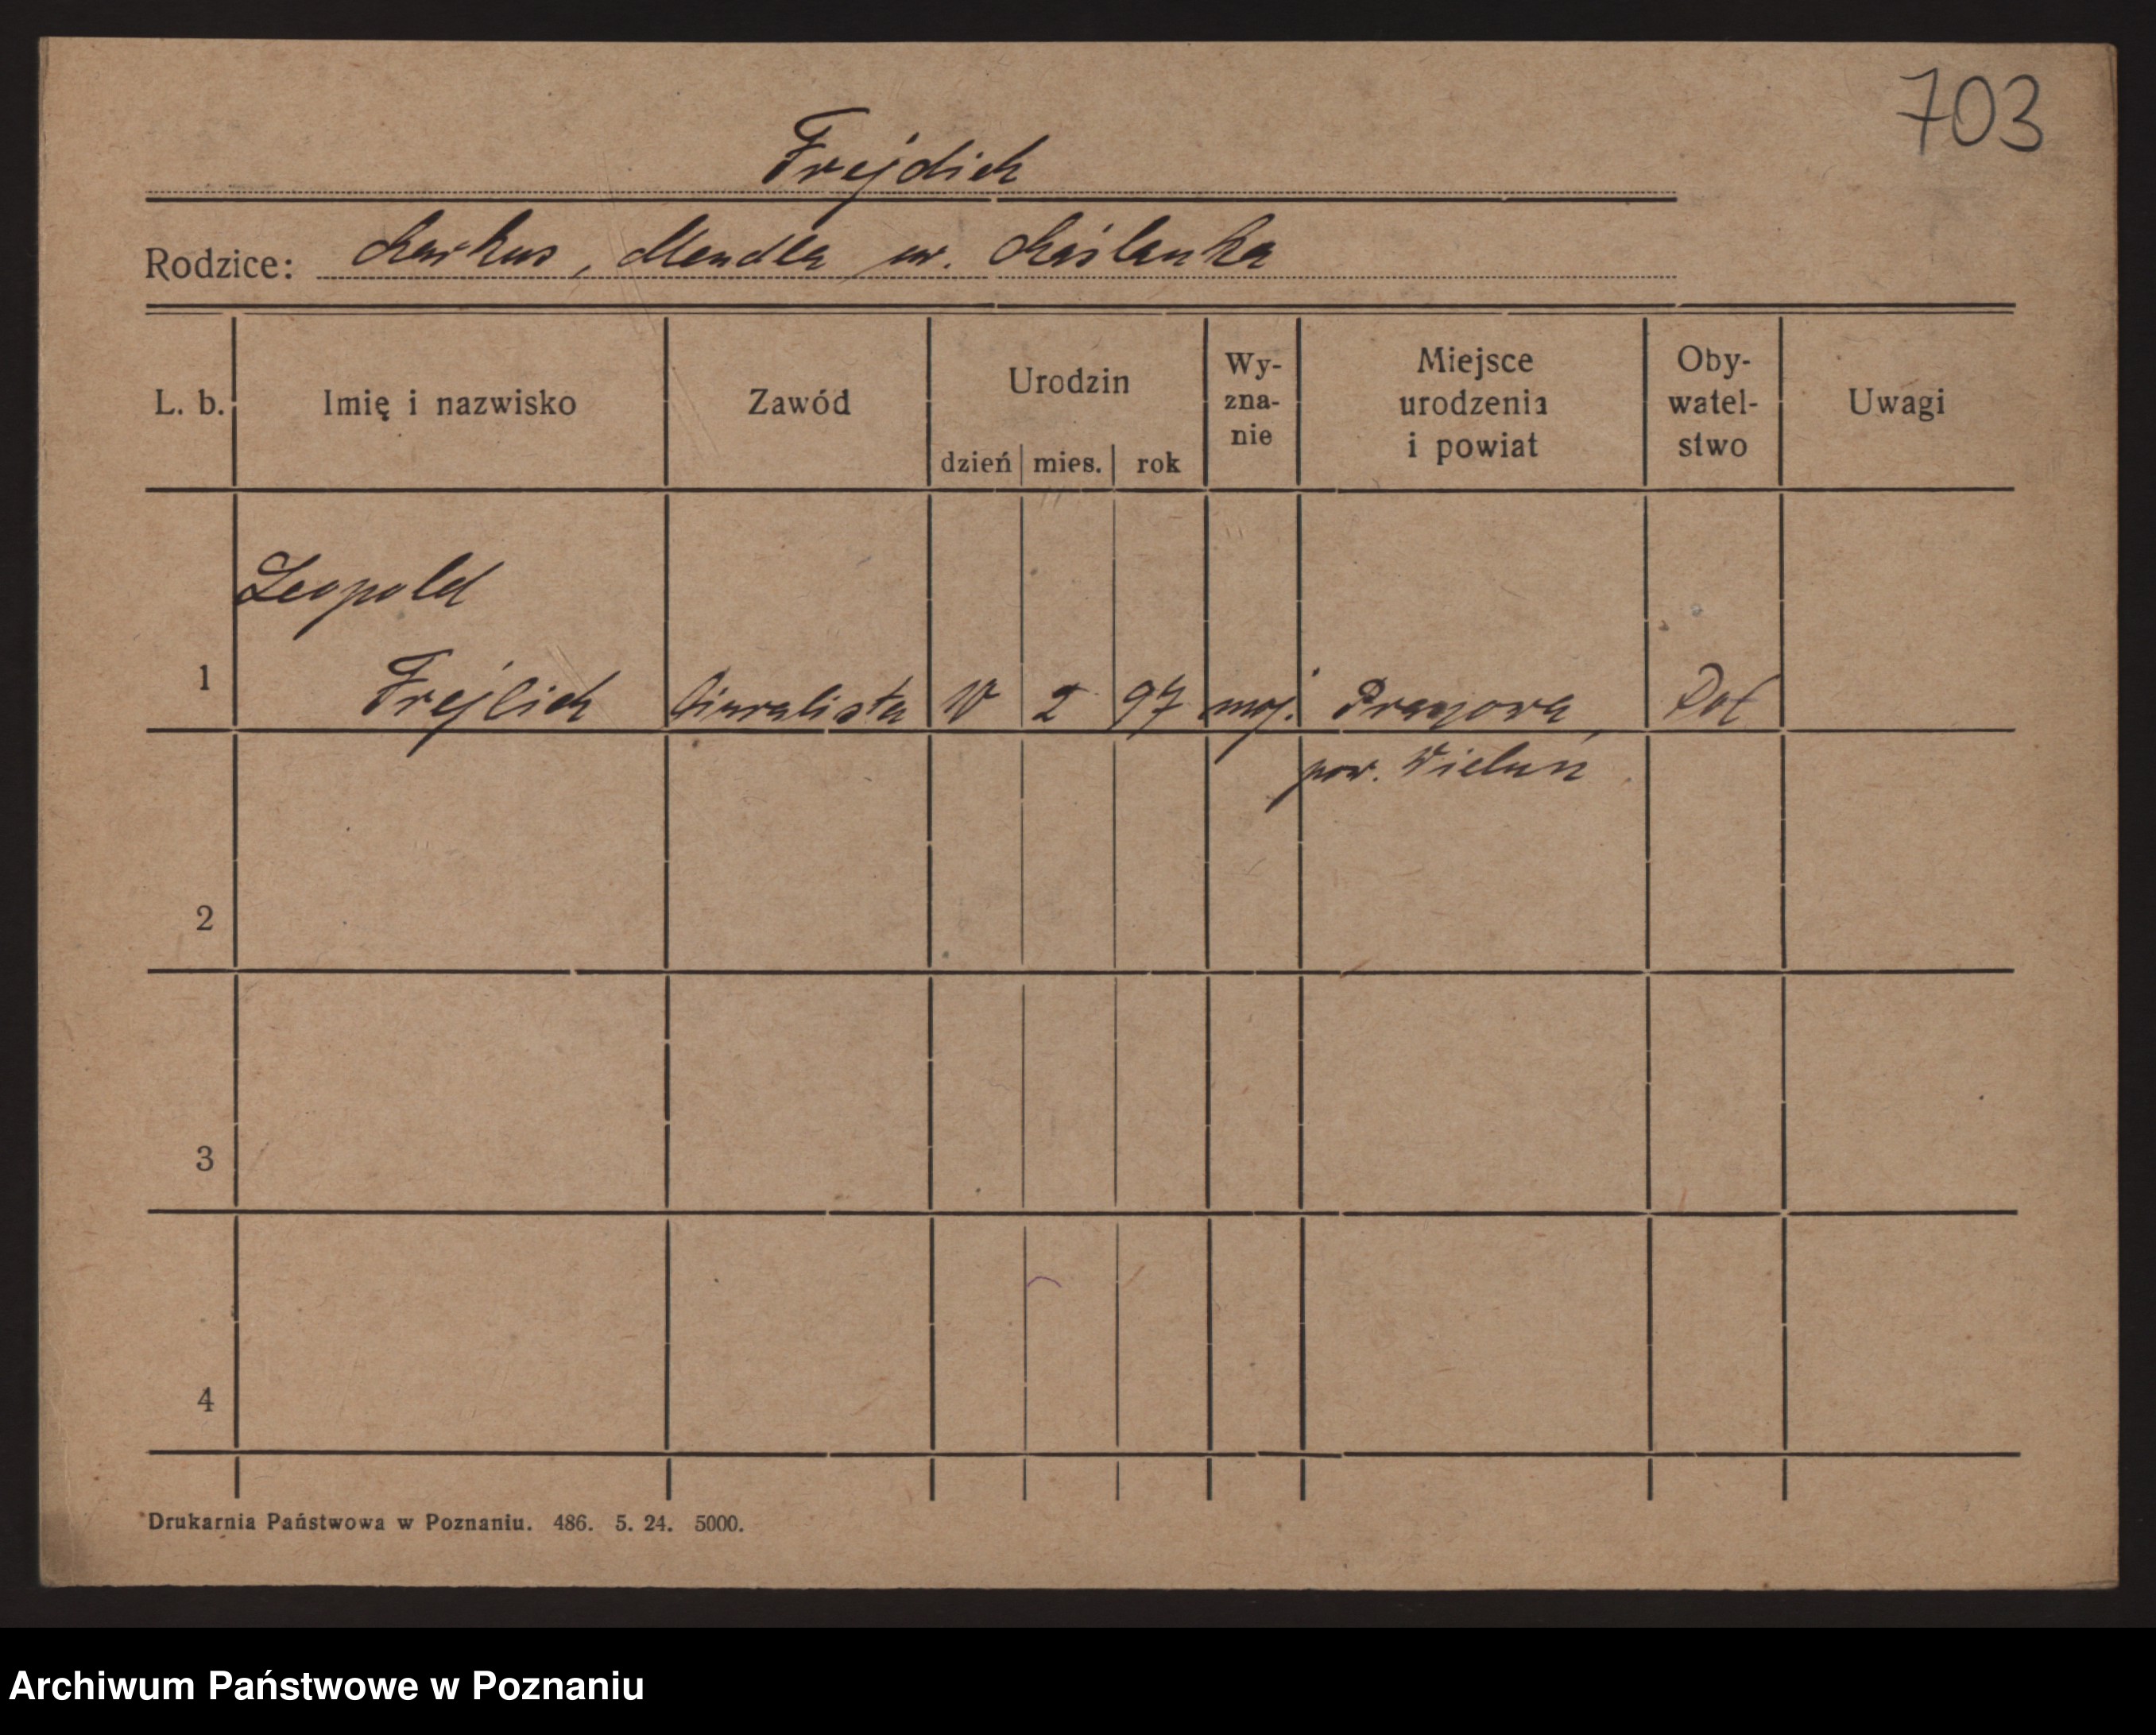 703
Frejdich
Rodzice: Markus, Mendla ur. Maślanka
L. b. Imię i nazwisko Zawód Urodzin dzień mies. rok Wy-zna-nie Miejsce urodzenia i powiat Oby-watel-stwo Uwagi
Leopold
1 Frejlich biuralista 10 2 97 moj. Praszora Pol
pow. Wieluń
2
3
4
Drukarnia Państwowa w Poznaniu. 486. 5. 24. 5000.
Archiwum Państwowe w Poznaniu